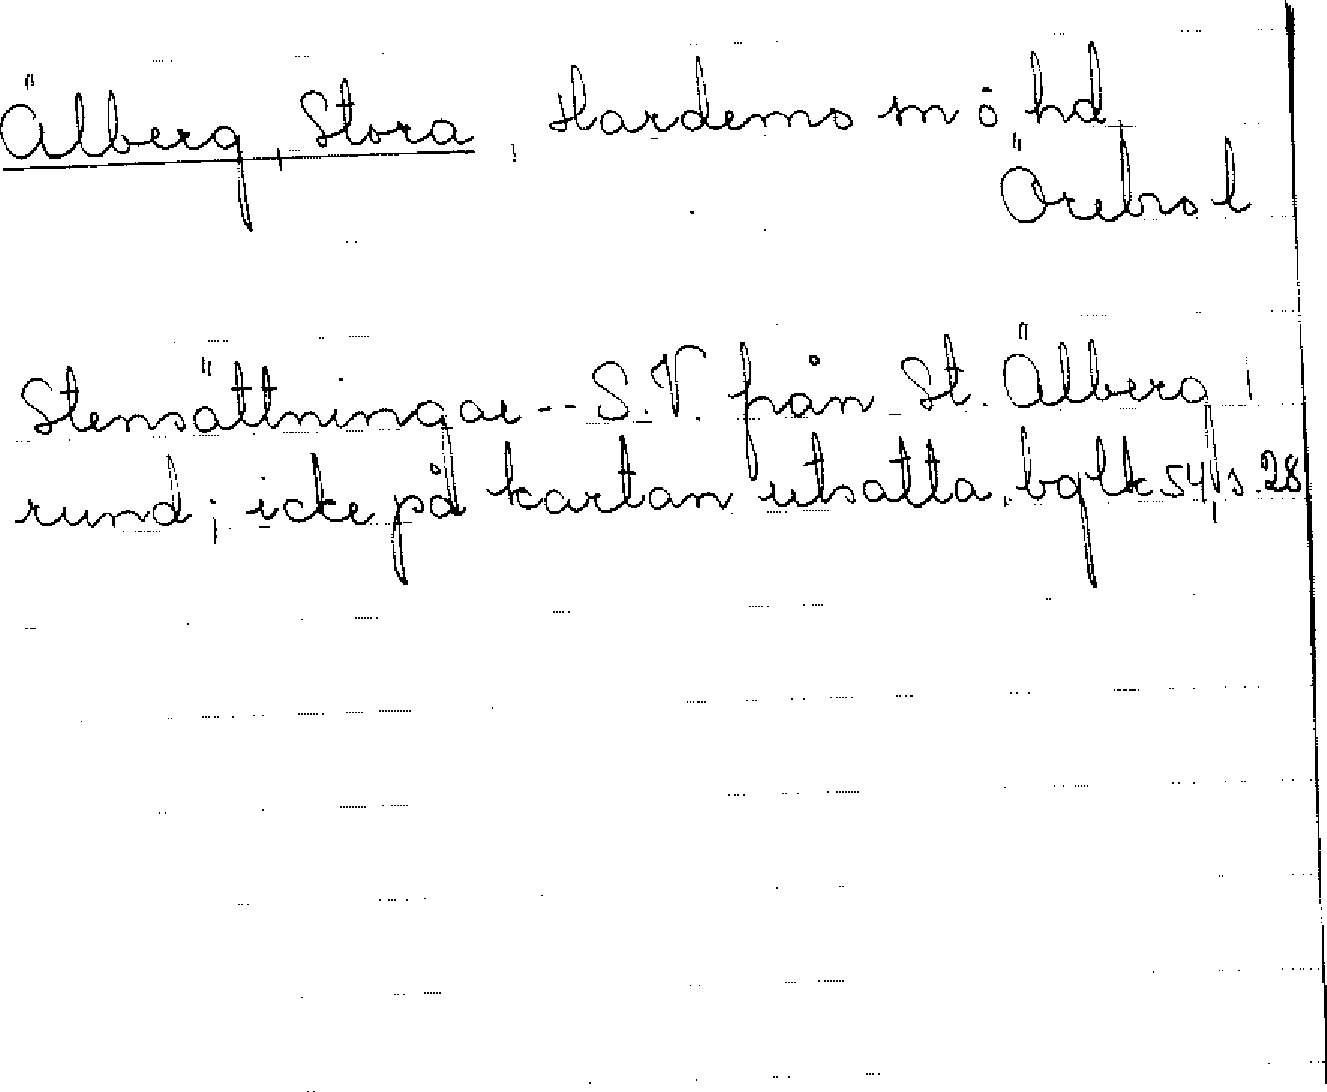 Älberg, Stora, Hardemo sn ö hd,
Örebro l
Stensättningar -- S.V. från St. Älberg,
rund; icke på kartan utsatta, bglk 54, s. 28